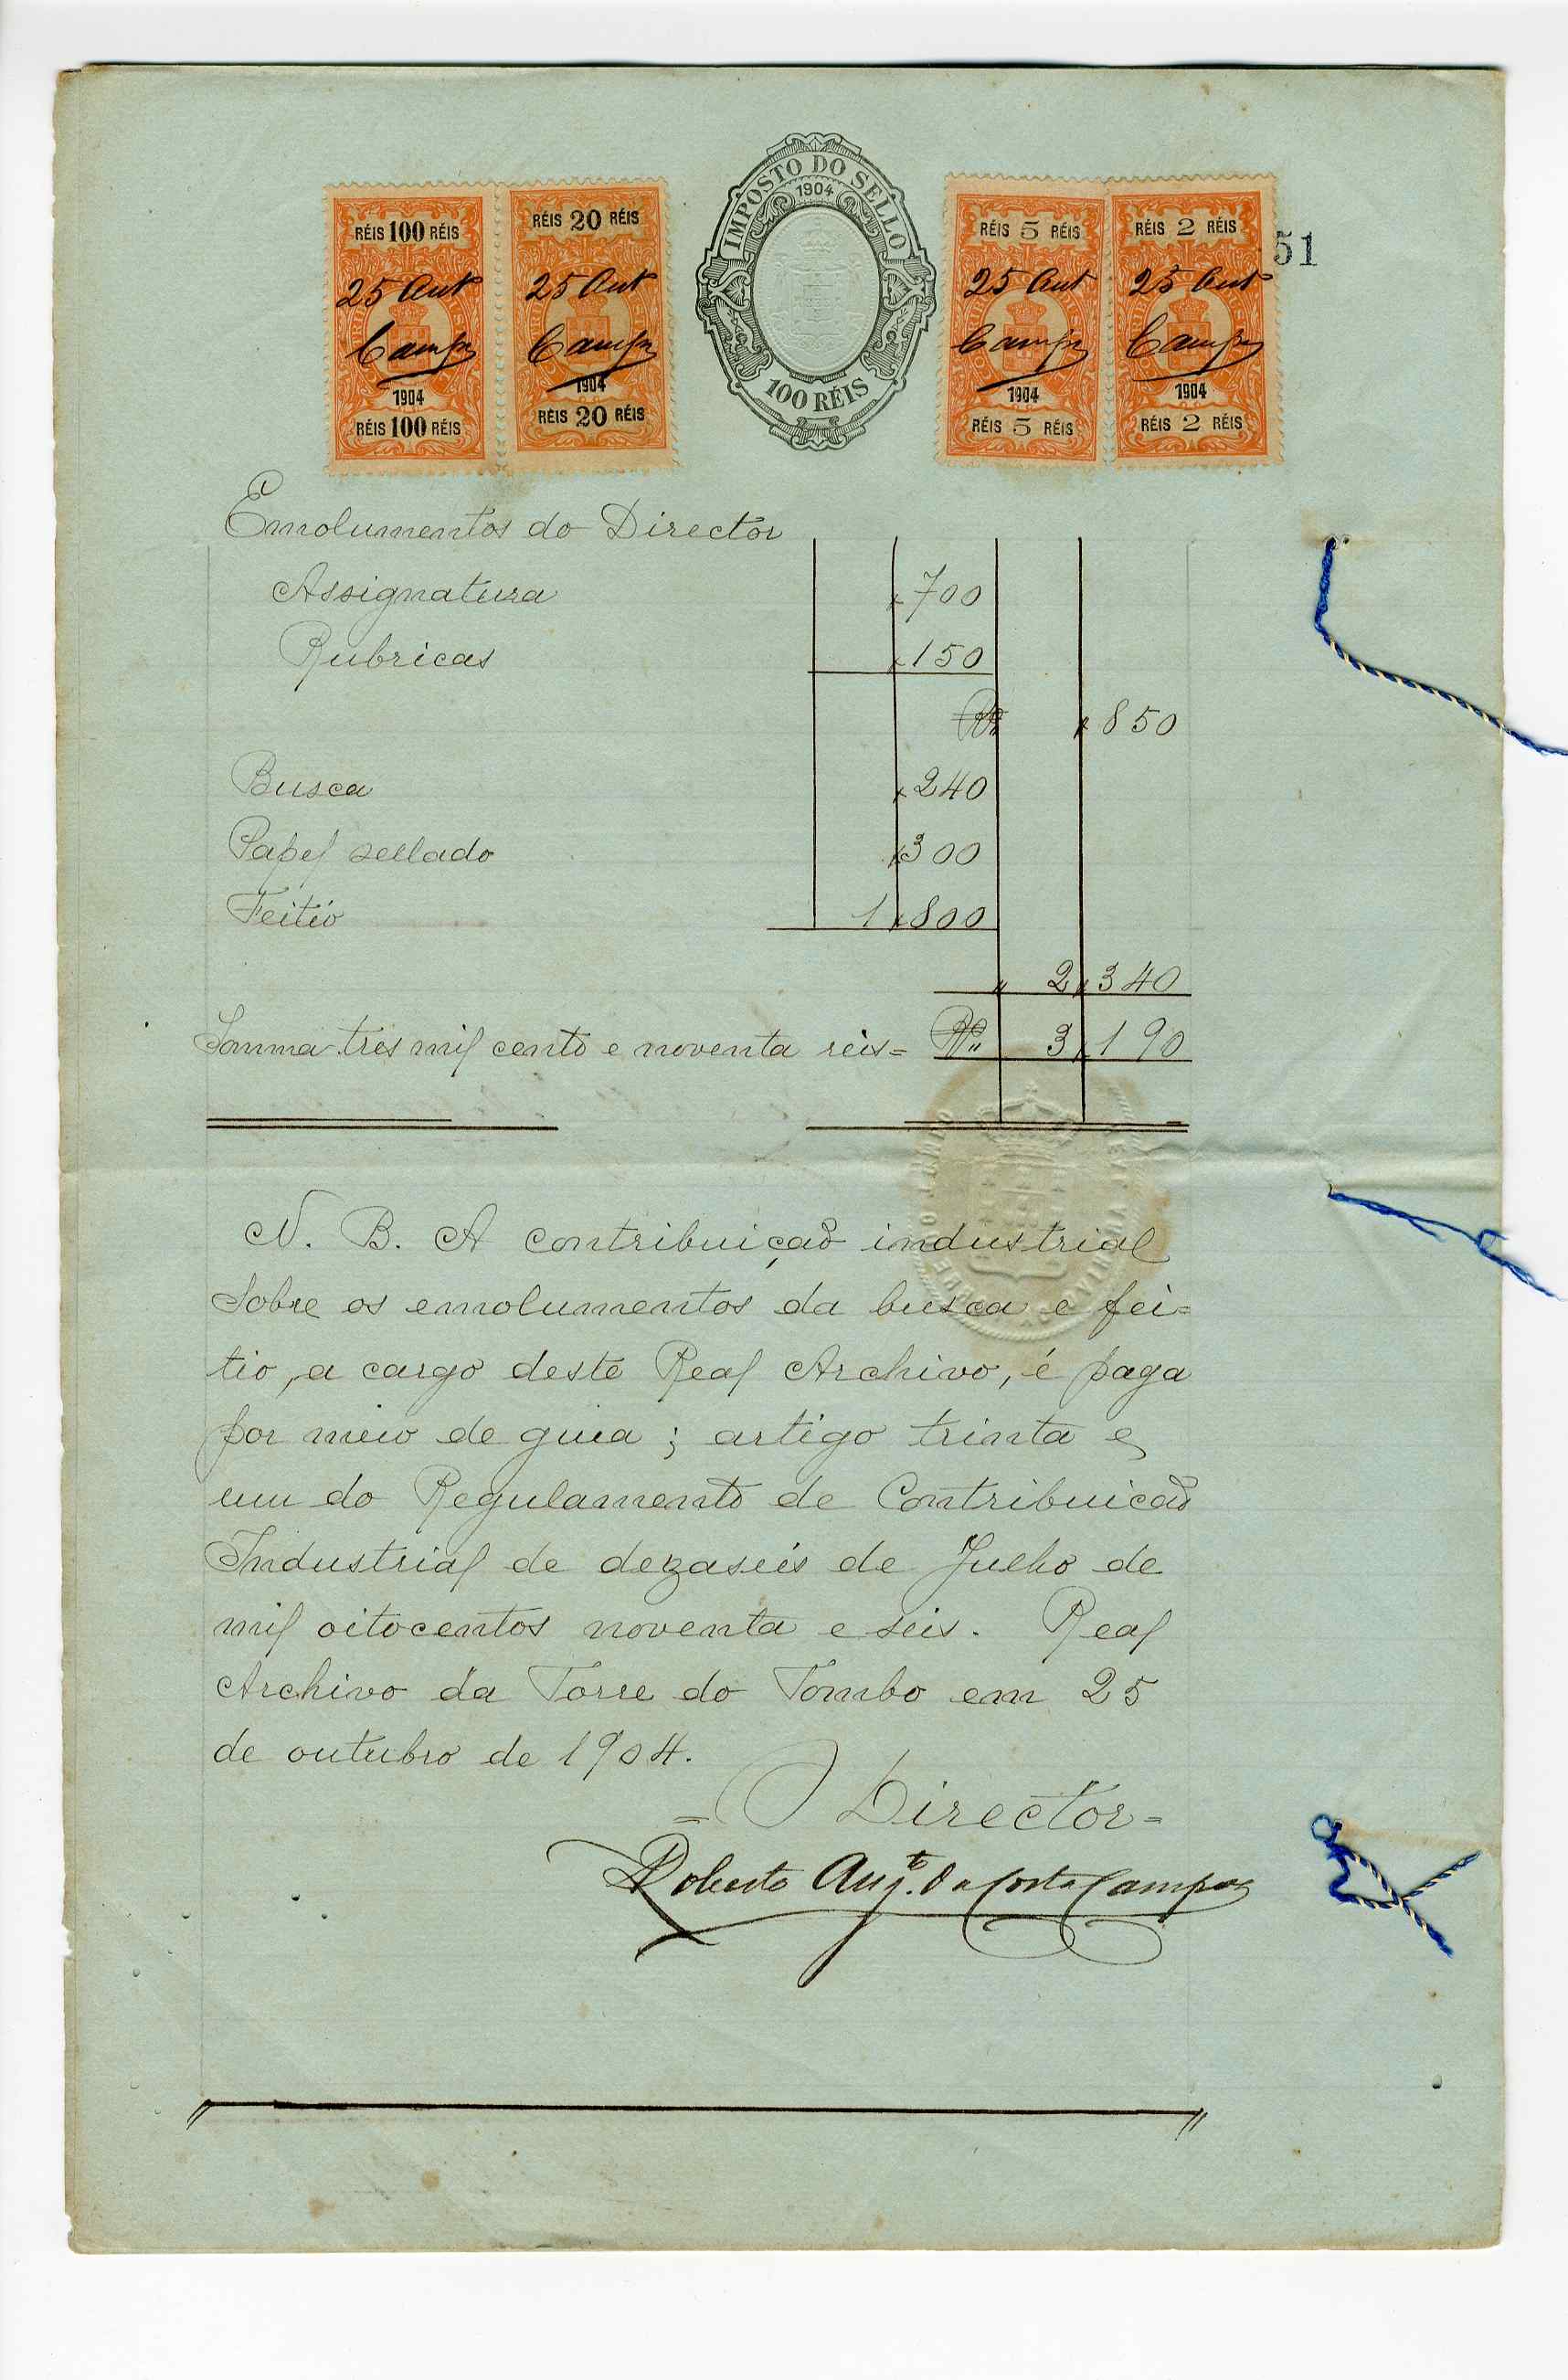 IMPOSTO DO SELLO
1904
100 RÉIS
RÉIS 100 RÉIS
25 Out
Campos
1904
RÉIS 100 RÉIS
RÉIS 20 RÉIS
25 Out
Campos
1904
RÉIS 20 RÉIS
RÉIS 5 RÉIS
25 Out
Campos
1904
RÉIS 5 RÉIS
RÉIS 2 RÉIS
25 Out
Campos
1904
RÉIS 2 RÉIS
51
Emolumentos do Director
Assignatura 700
Rubricas 150
Rs 850
Busca 240
Papel sellado 300
Feitio 1 800
2 340
Somma tres mil cento e noventa reis = Rs 3 190
N. B. A contribuição industrial
sobre os emolumentos da busca e fei=
tio, a cargo deste Real Archivo, é paga
por meio de guia; artigo trinta e
um do Regulamento de Contribuicão
Industrial de dezaseis de Julho de
mil oitocentos noventa e seis. Real
Archivo da Torre do Tombo em 25
de outubro de 1904.
= O Director =
Roberto Augto. da Costa Campos